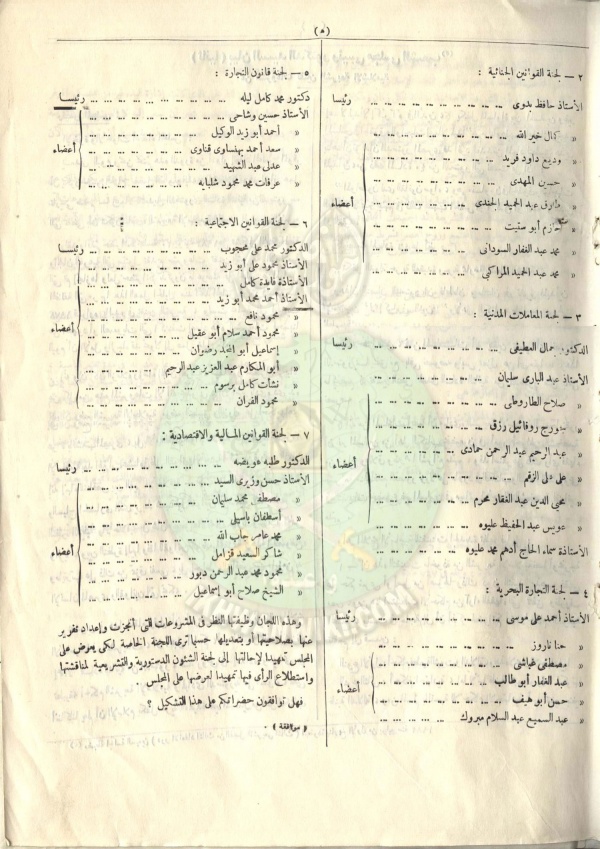 (٥)
٢ — لجنة القوانين الجنائية :
الأستاذ حافظ بدوى ... ... ... ... ... رئيسا
» كمال خير الله ... ... ... ... ...
» وديع داود فريد ... ... ... ... ...
» حسين المهدى ... ... ... ... ...
» طارق عبد الحميد الجندى ... ... ... أعضاء
» حازم أبو ستيت ... ... ... ... ...
» محمد عبد الغفار السودانى ... ... ...
» محمد عبد الحميد المراكبى ... ... ...
٣ — لجنة المعاملات المدنية :
الدكتور جمال العطيفى ... ... ... ... رئيسا
الأستاذ عبد البارى سليمان ... ... ... ...
» صلاح الطاروطى ... ... ... ... ...
» جورج روفائيل رزق ... ... ... ...
» عبد الرحيم عبد الرحمن حمادى ... ... ...
» على على الزقم ... ... ... ... أعضاء
» محيى الدين عبد الغفار محرم ... ... ...
» عويس عبد الحفيظ عليوه ... ... ...
الأستاذة سماء الحاج أدهم محمد عليوه ... ...
٤ — لجنة التجارة البحرية :
الأستاذ أحمد على موسى ... ... ... ... رئيسا
» حنا ناروز ... ... ... ... ...
» مصطفى غباشى ... ... ... ... ...
» عبد الغفار أبو طالب ... ... ... أعضاء
» حسن أبو هيف ... ... ... ... ...
» عبد السميع عبد السلام مبروك ... ...
٥ — لجنة قانون التجارة :
دكتور محمد كامل ليله ... ... ... ... رئيسا
الأستاذ حسين وشاحى ... ... ... ...
» أحمد أبو زيد الوكيل ... ... ... ...
» سعد أحمد بهنساوى قناوى ... ... أعضاء
» عدلى عبد الشهيد ... ... ... ...
» عرفات محمد محمود شلبايه ... ... ...
٦ — لجنة القوانين الاجتماعية :
الدكتور محمد على محجوب ... ... ... ... رئيسا
الأستاذ محمود على أبو زيد ... ... ... ...
الأستاذة فايدة كامل ... ... ... ...
الأستاذ أحمد محمد أبو زيد ... ... ...
» محمود نافع ... ... ... ...
» محمود أحمد سلام أبو عقيل ... ... أعضاء
» إسماعيل أبو المجد رضوان ... ... ...
» أبو المكارم عبد العزيز عبد الرحيم ... ...
» نشأت كامل برسوم ... ... ... ...
» محمود الفران ... ... ... ...
٧ — لجنة القوانين المالية والاقتصادية :
الدكتور طلبه عويضه ... ... ... ... رئيسا
الأستاذ حسن وزيرى السيد ... ... ... ...
» مصطفى محمد سليمان ... ... ... ...
» أسطفان باسيلى ... ... ... ...
» محمد عامر جاب الله ... ... ... ...
» شاكر السعيد قزامل ... ... ... أعضاء
» محمود محمد عبد الرحمن دبور ... ... ...
» الشيخ صلاح أبو إسماعيل ... ... ...
وهذه اللجان وظيفتها النظر فى المشروعات التى أنجزت وإعداد تقرير
عنها بصلاحيتها أو بتعديلها حسبما ترى اللجنة الخاصة لكى يعرض على
المجلس تمهيدا لإحالتها إلى لجنة الشئون الدستورية والتشريعية لمناقشتها
واستطلاع الرأى فيها تمهيدا لعرضها على المجلس .
فهل توافقون حضراتكم على هذا التشكيل ؟
( موافقة ) .